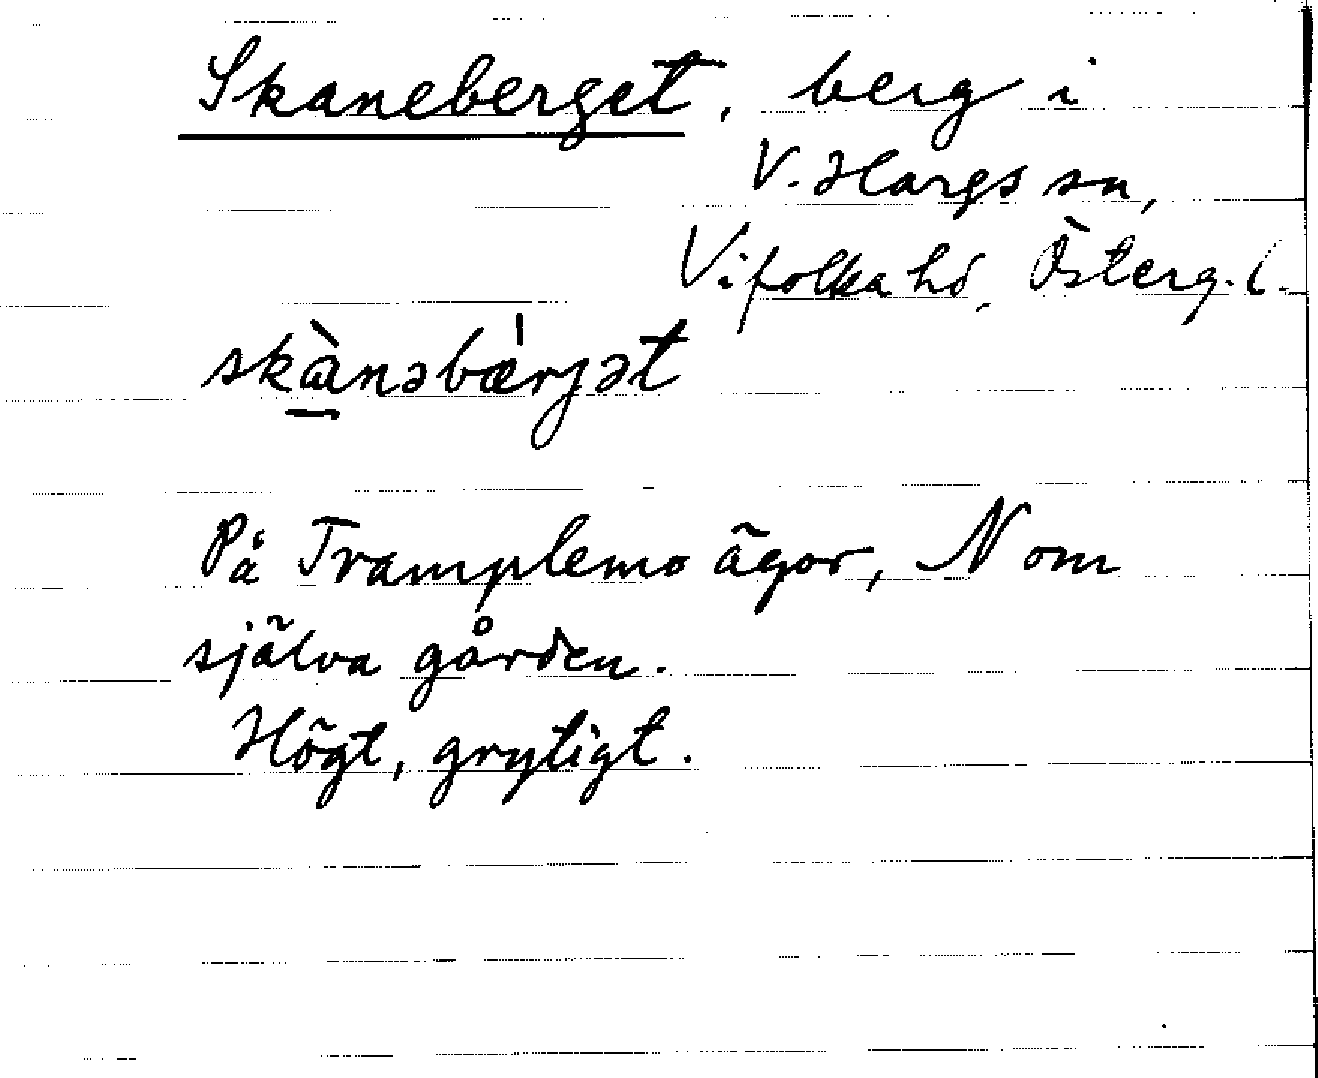 Skaneberget, berg i
V. Hargs sn,
Vifolka hd, Österg. l.
skànəbæ̍rjət
På Tramplemo ägor, N om
själva gården.
Högt, grytigt.